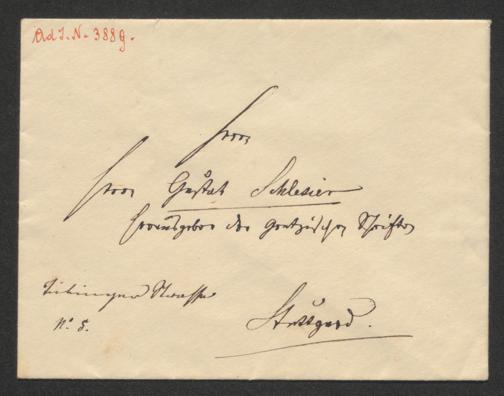 Ad I.N. 3889.
Herrn
Herrn Gustav Schlesier
Herausgeber der Gentzischen Schriften
Tübinger Strasse
No. 5.
Stuttgard.